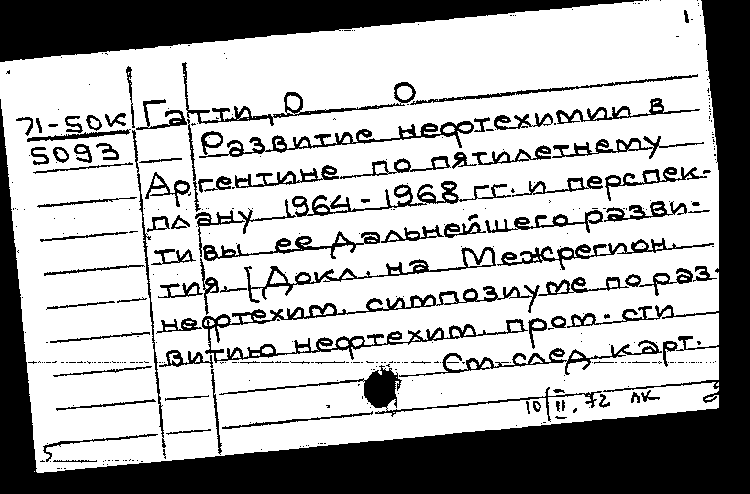 1
71-50К Гатти, О О
5093 Развитие нефтехимии в
Аргентине по пятилетнему
плану 1964-1968 гг. и перспек-
тивы ее дальнейшего разви-
тия. [Докл. на Межрегион.
нефтехим. симпозиуме по раз-
витию нефтехим. пром-сти
См. след. карт.
10/II.72 лк
5